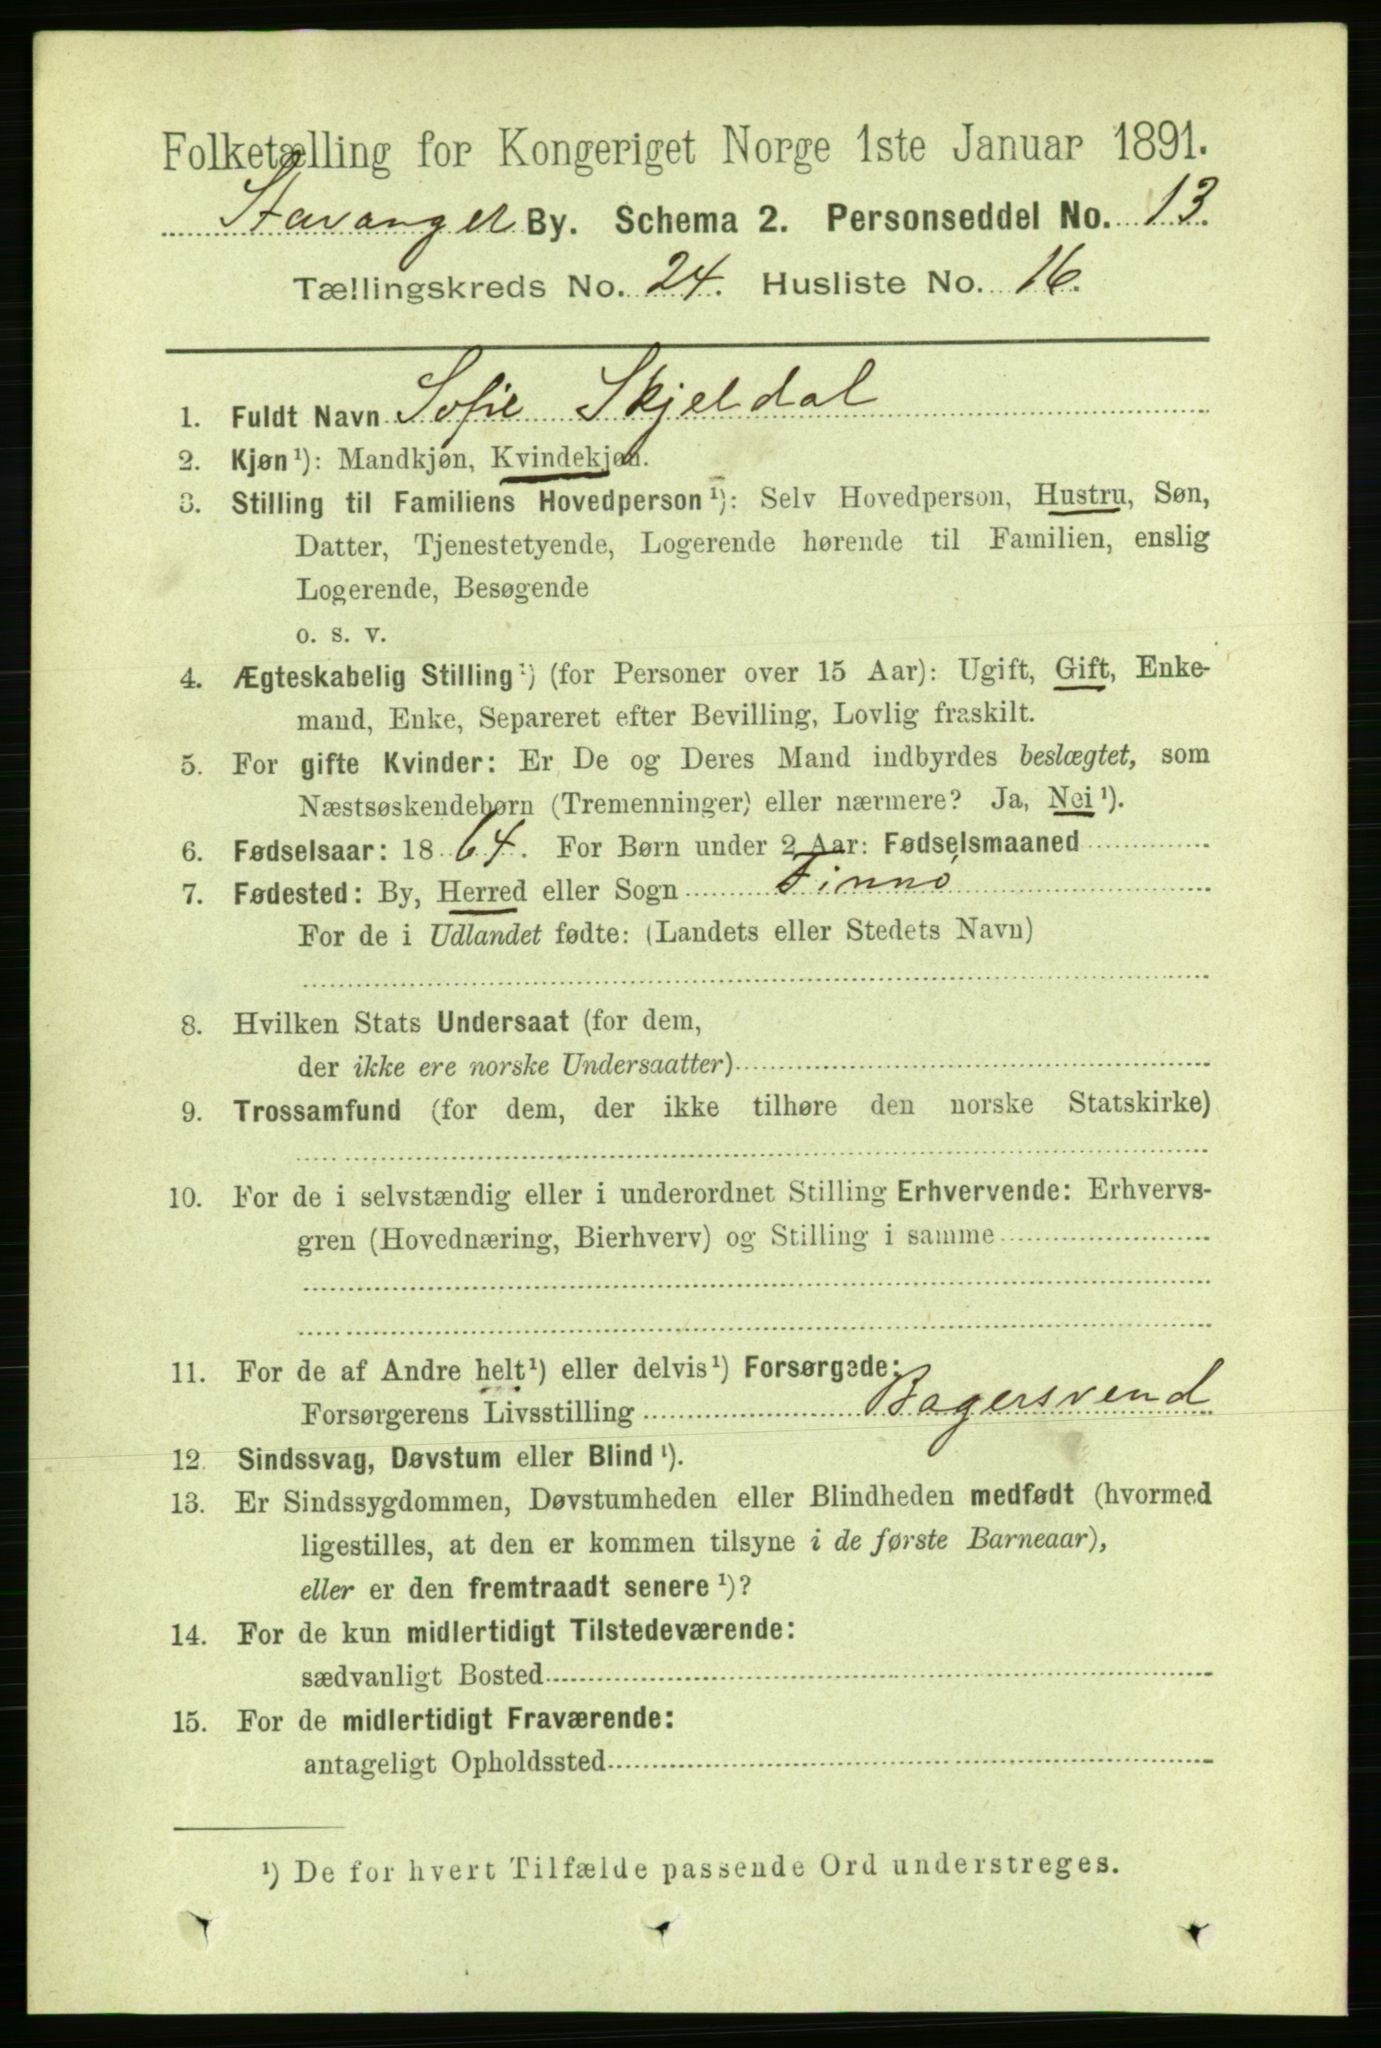 Folketælling for Kongeriget Norge 1ste Januar 1891.
Stavanger By. Schema 2. Personseddel No. 13.
Tællingskreds No. 24. Husliste No. 16.
1. Fuldt Navn Sofie Skjeldal
2. Kjøn ¹): Mandkjøn, Kvindekjøn.
3. Stilling til Familiens Hovedperson ¹): Selv Hovedperson, Hustru, Søn,
Datter, Tjenestetyende, Logerende hørende til Familien, enslig
Logerende, Besøgende
o. s. v.
4. Ægteskabelig Stilling ¹) (for Personer over 15 Aar): Ugift, Gift, Enke-
mand, Enke, Separeret efter Bevilling, Lovlig fraskilt.
5. For gifte Kvinder: Er De og Deres Mand indbyrdes beslægtet, som
Næstsøskendebørn (Tremenninger) eller nærmere? Ja, Nei ¹).
6. Fødselsaar: 1864. For Børn under 2 Aar: Fødselsmaaned
7. Fødested: By, Herred eller Sogn Finnö
For de i Udlandet fødte: (Landets eller Stedets Navn)
8. Hvilken Stats Undersaat (for dem,
der ikke ere norske Undersaatter)
9. Trossamfund (for dem, der ikke tilhøre den norske Statskirke)
10. For de i selvstændig eller i underordnet Stilling Erhvervende: Erhvervs-
gren (Hovednæring, Bierhverv) og Stilling i samme
11. For de af Andre helt ¹) eller delvis ¹) Forsørgede:
Forsørgerens Livsstilling Bagersvend
12. Sindssvag, Døvstum eller Blind ¹).
13. Er Sindssygdommen, Døvstumheden eller Blindheden medfødt (hvormed
ligestilles, at den er kommen tilsyne i de første Barneaar),
eller er den fremtraadt senere ¹)?
14. For de kun midlertidigt Tilstedeværende:
sædvanligt Bosted
15. For de midlertidigt Fraværende:
antageligt Opholdssted
¹) De for hvert Tilfælde passende Ord understreges.